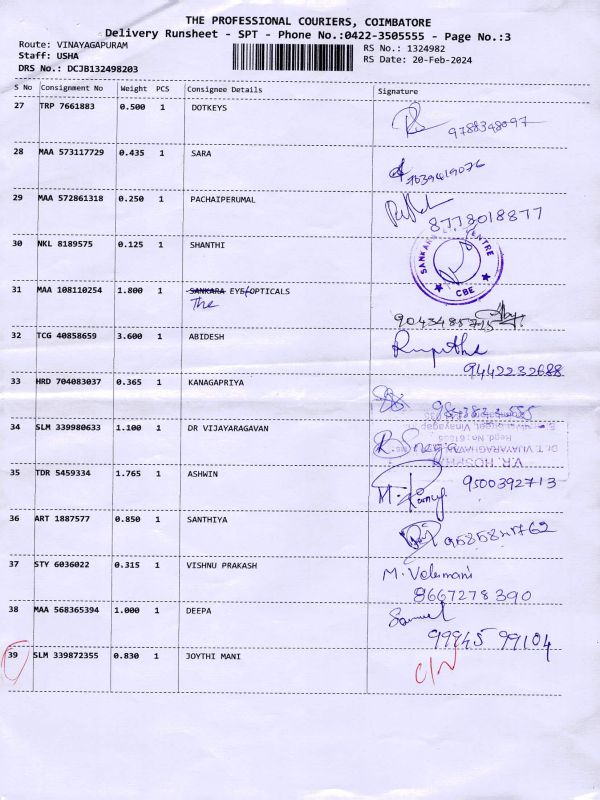 THE PROFESSIONAL COURIERS, COIMBATORE
Delivery Runsheet - SPT - Phone No.:0422-3505555 - Page No.:3
Route: VINAYAGAPURAM
Staff: USHA
DRS No.: DCJB132498203
RS No.: 1324982
RS Date: 20-Feb-2024
S No Consignment No Weight PCS Consignee Details Signature
27 TRP 7661883 0.500 1 DOTKEYS
9788348097
28 MAA 573117729 0.435 1 SARA
29 MAA 572861318 0.250 1 PACHAIPERUMAL
8778018877
30 NKL 8189575 0.125 1 SHANTHI
SANKARA CENTRE
CBE
31 MAA 108110254 1.800 1 SANKARA EYE OPTICALS
The
9043485715
32 TCG 40858659 3.600 1 ABIDESH
9442232688
33 HRD 704083037 0.365 1 KANAGAPRIYA
34 SLM 339980633 1.100 1 DR VIJAYARAGAVAN
V.R. HOSPITAL
Dr. T. VIJAYARAGHAVAN
35 TDR 5459334 1.765 1 ASHWIN
9500392713
36 ART 1887577 0.850 1 SANTHIYA
37 STY 6036022 0.315 1 VISHNU PRAKASH
M. Velumani
8667278390
38 MAA 568365394 1.000 1 DEEPA
Samuel
99945 99104
39 SLM 339872355 0.830 1 JOYTHI MANI
C/N